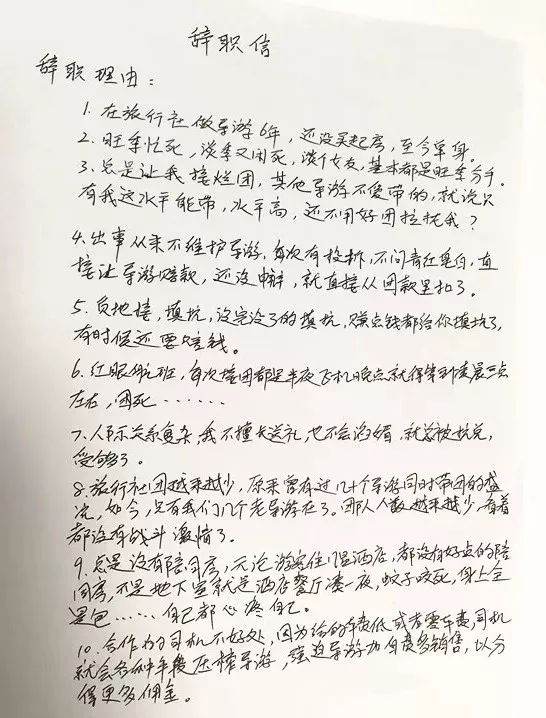 辞职信
辞职理由：
1. 在旅行社做导游6年，还没买起房，至今单身。
2. 旺季忙死，淡季又闲死，谈个女友，基本都是旺季分手。
3. 总是让我接烂团，其他导游不愿带的，就说只
有我这水平能带，水平高，还不用好团拉拢我？
4. 出事从来不维护导游，每次有投诉，不问青红皂白，直
接让导游赔款，还没申辩，就直接从团款里扣了。
5. 负地接，填坑，没完没了的填坑，赚点钱都给你填坑了，
有时候还要赔钱。
6. 红眼航班，每次接团都是半夜飞机晚点就得等到凌晨三点
左右，困死……
7、人际关系复杂，我不擅长送礼，也不会谄媚，就总被挤兑，
受够了。
8. 旅行社团越来越少，原来曾有过几十个导游同时带团的盛
况，如今，只有我们几个老导游在了。团队人数越来越少，看着
都没有战斗激情了。
9. 总是没有陪同房，无论游客住啥酒店，都没有好点的陪
同房，不是地下室就是酒店餐厅凑一夜，蚊子咬死，身上全
是包……自己都心疼自己。
10. 合作的司机不好处，因为给的车费低或者零车费，司机
就会各种手段压榨导游，强迫导游加自费多销售，以分
得更多佣金。